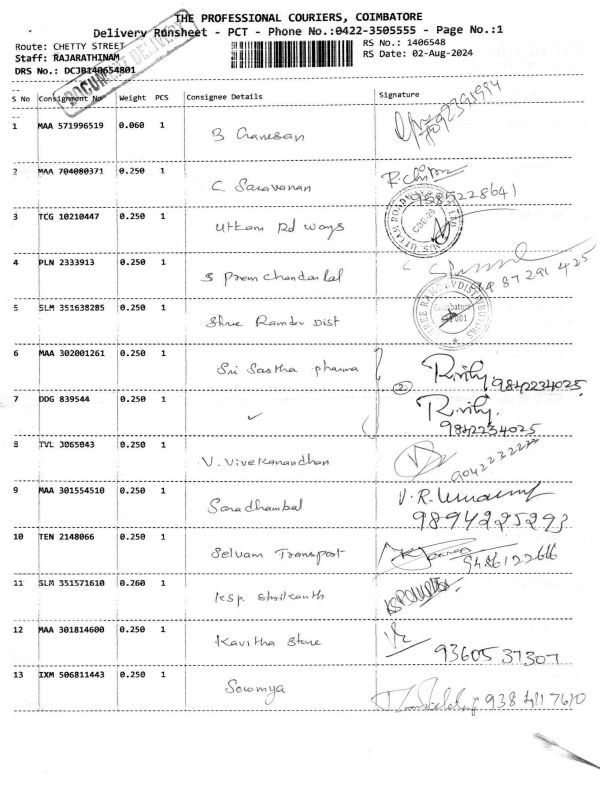 THE PROFESSIONAL COURIERS, COIMBATORE
Delivery Runsheet - PCT - Phone No.:0422-3505555 - Page No.:1
Route: CHETTY STREET
RS No.: 1406548
Staff: RAJARATHINAM
RS Date: 02-Aug-2024
DRS No.: DCJB140654801
DOCUMENT DELIVERY
S No Consignment No Weight PCS Consignee Details Signature
1 MAA 571996519 0.060 1 B Ganesan
2 MAA 704080371 0.250 1 C Saravanan 9585228641
3 TCG 10210447 0.250 1 Uttam Rd Ways
4 PLN 2333913 0.250 1 S Prem Chandanlal
5 SLM 351638285 0.250 1 Shree Ramdev Dist
6 MAA 302001261 0.250 1 Sri Sastha pharma 9842234025
7 DDG 839544 0.250 1 ✓ 9842234025
8 TVL 3065043 0.250 1 V. Vivekanandhan
9 MAA 301554510 0.250 1 Saradhambal 9894225293
10 TEN 2148066 0.250 1 Selvam Transport 9486122666
11 SLM 351571610 0.260 1 K.S.P. Shrikanth
12 MAA 301814600 0.250 1 Kavitha Store 9360537307
13 IXM 506811443 0.250 1 Sowmya